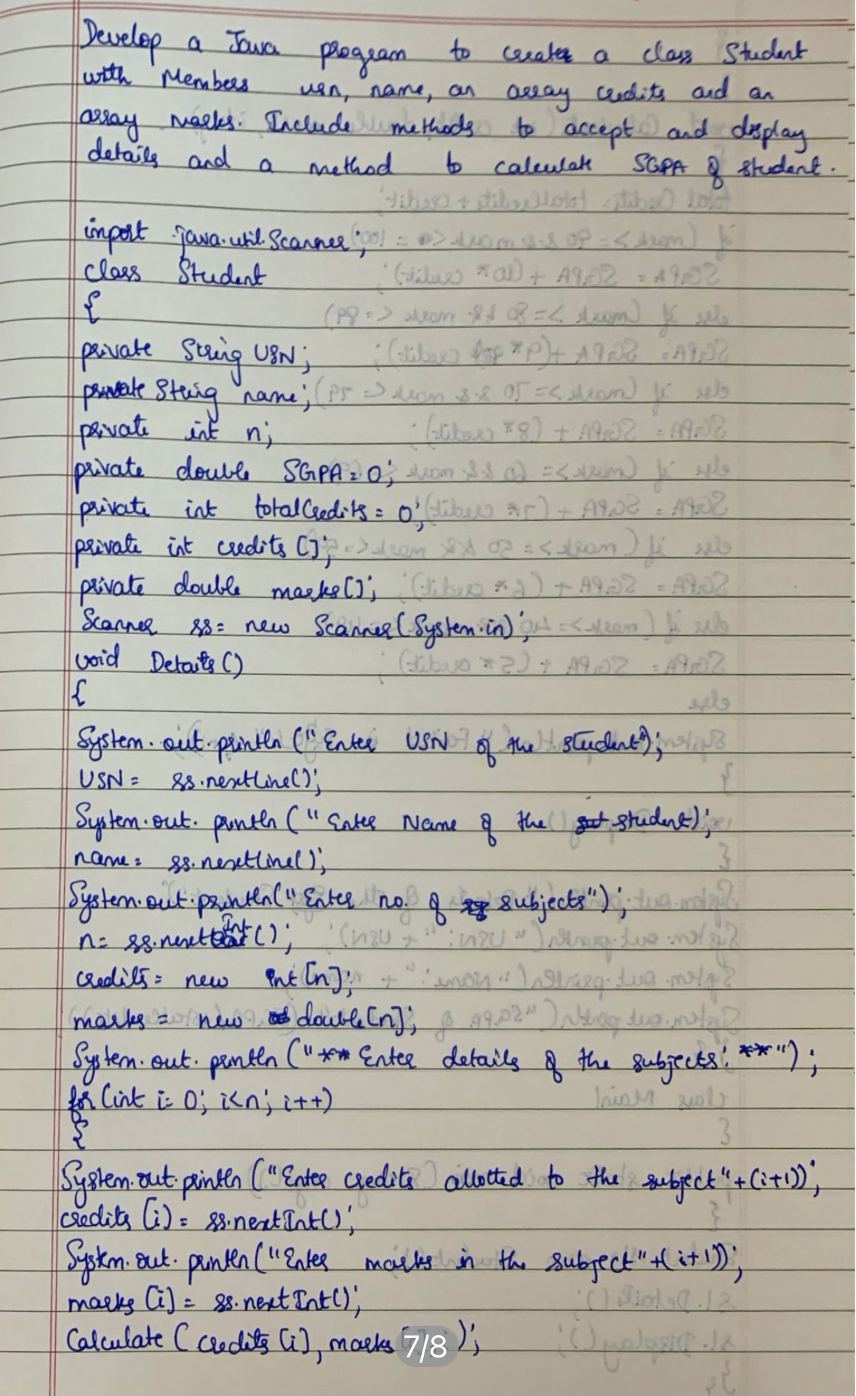 Develop a Java program to create a class Student
with Members usn, name, an array credits and an
array marks. Include methods to accept and display
details and a method to calculate SGPA of student.
import java.util.Scanner;
class Student
{
private String USN;
private String name;
private int n;
private double SGPA = 0;
private int totalCredits = 0;
private int credits [];
private double marks[];
Scanner ss= new Scanner(System.in);
void Details()
{
System.out.println ("Enter USN of the student");
USN = ss.nextLine();
System.out.println ("Enter Name of the student);
name = ss.nextLine();
System.out.println("Enter no. of subjects");
n= ss.nextInt();
credits = new int[n];
marks = new double[n];
System.out.println ("** Enter details of the subjects: **");
for (int i= 0; i<n; i++)
{
System.out.println ("Enter credits allotted to the subject"+(i+1));
credits [i] = ss.nextInt();
System.out.println ("Enter marks in the subject"+(i+1));
marks [i] = ss.nextInt();
Calculate ( credits [i], marks );
7/8